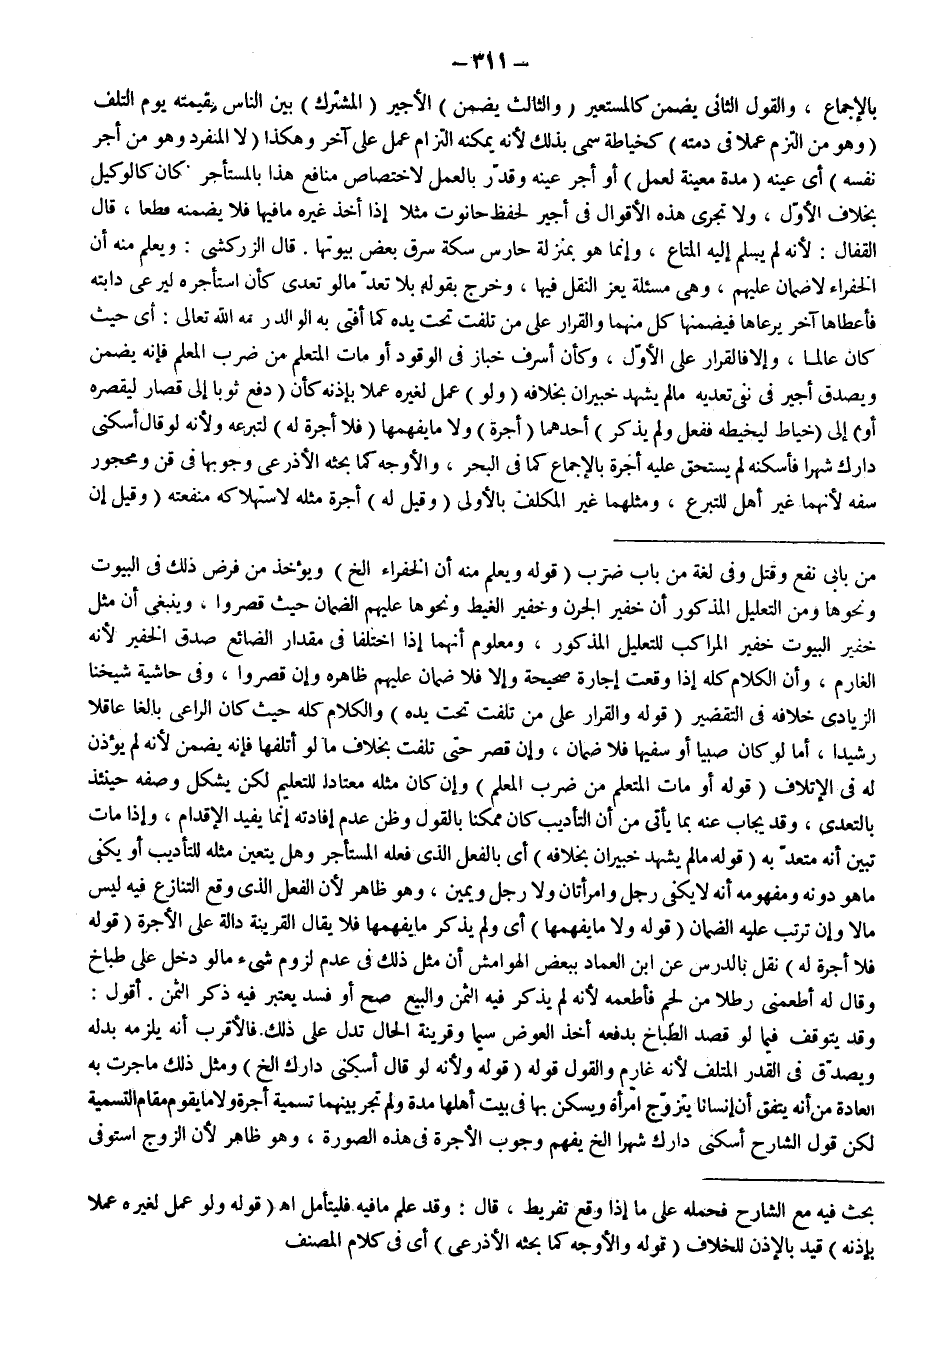 - ٣١١ -
بالإجماع ، والقول الثانى يضمن كالمستعير ( والثالث يضمن ) الأجير ( المشترك ) بين الناس بقيمته يوم التلف
( وهو من التزم عملا فى ذمته ) كخياطة سمى بذلك لأنه يمكنه التزام عمل على آخر وهكذا ( لا المنفرد وهو من أجر
نفسه ) أى عينه ( مدة معينة لعمل ) أو أجر عينه وقدّر بالعمل لاختصاص منافع هذا بالمستأجر كان كالوكيل
بخلاف الأوّل ، ولا تجرى هذه الأقوال فى أجير لحفظ حانوت مثلا إذا أخذ غيره مافيها فلا يضمنه قطعا ، قال
القفال : لأنه لم يسلم إليه المتاع ، وإنما هو بمنزلة حارس سكة سرق بعض بيوتها . قال الزركشى : ويعلم منه أن
الخفراء لاضمان عليهم ، وهى مسئلة يعز النقل فيها ، وخرج بقوله بلا تعدّ مالو تعدى كأن استأجره ليرعى دابته
فأعطاها آخر يرعاها فيضمنها كل منهما والقرار على من تلفت تحت يده كما أفتى به الوالد رحمه الله تعالى : أى حيث
كان عالما ، وإلا فالقرار على الأوّل ، وكأن أسرف خباز فى الوقود أو مات المتعلم من ضرب المعلم فإنه يضمن
ويصدق أجير فى نفى تعديه مالم يشهد خبيران بخلافه ( ولو ) عمل لغيره عملا بإذنه كأن ( دفع ثوبا إلى قصار ليقصره
أو ) إلى ( خياط ليخيطه ففعل ولم يذكر ) أحدهما ( أجرة ) ولا مايفهمها ( فلا أجرة له ) لتبرعه ولأنه لو قال أسكنى
دارك شهرا فأسكنه لم يستحق عليه أجرة بالإجماع كما فى البحر ، والأوجه كما بحثه الأذرعى وجوبها فى قن ومحجور
سفه لأنهما غير أهل للتبرع ، ومثلهما غير المكلف بالأولى ( وقيل له ) أجرة مثله لاستهلاكه منفعته ( وقيل إن
من بابى نفع وقتل وفى لغة من باب ضرب ( قوله ويعلم منه أن الخفراء الخ ) ويؤخذ من فرض ذلك فى البيوت
ونحوها ومن التعليل المذكور أن خفير الجرن وخفير الغيط ونحوها عليهم الضمان حيث قصروا ، وينبغى أن مثل
خفير البيوت خفير المراكب للتعليل المذكور ، ومعلوم أنهما إذا اختلفا فى مقدار الضائع صدق الخفير لأنه
الغارم ، وأن الكلام كله إذا وقعت إجارة صحيحة وإلا فلا ضمان عليهم ظاهره وإن قصروا ، وفى حاشية شيخنا
الزيادى خلافه فى التقصير ( قوله والقرار على من تلفت تحت يده ) والكلام كله حيث كان الراعى بالغا عاقلا
رشيدا ، أما لو كان صبيا أو سفيها فلا ضمان ، وإن قصر حتى تلفت بخلاف ما لو أتلفها فإنه يضمن لأنه لم يؤذن
له فى الإتلاف ( قوله أو مات المتعلم من ضرب المعلم ) وإن كان مثله معتادا للتعليم لكن يشكل وصفه حينئذ
بالتعدى ، وقد يجاب عنه بما يأتى من أن التأديب كان ممكنا بالقول وظن عدم إفادته إنما يفيد الإقدام ، وإذا مات
تبين أنه متعدّ به ( قوله مالم يشهد خبيران بخلافه ) أى بالفعل الذى فعله المستأجر وهل يتعين مثله للتأديب أو يكفى
ماهو دونه ومفهومه أنه لايكفى رجل وامرأتان ولا رجل ويمين ، وهو ظاهر لأن الفعل الذى وقع التنازع فيه ليس
مالا وإن ترتب عليه الضمان ( قوله ولا مايفهمها ) أى ولم يذكر مايفهمها فلا يقال القرينة دالة على الأجرة ( قوله
فلا أجرة له ) نقل بالدرس عن ابن العماد ببعض الهوامش أن مثل ذلك فى عدم لزوم شىء مالو دخل على طباخ
وقال له أطعمنى رطلا من لحم فأطعمه لأنه لم يذكر فيه الثمن والبيع صح أو فسد يعتبر فيه ذكر الثمن . أقول :
وقد يتوقف فيما لو قصد الطباخ بدفعه أخذ العوض سيما وقرينة الحال تدل على ذلك. فالأقرب أنه يلزمه بدله
ويصدّق فى القدر المتلف لأنه غارم والقول قوله ( قوله ولأنه لو قال أسكنى دارك الخ ) ومثل ذلك ماجرت به
العادة من أنه يتفق أن إنسانا يتزوّج امرأة ويسكن بها فى بيت أهلها مدة ولم تجر بينهما تسمية أجرة ولا مايقوم مقام التسمية
لكن قول الشارح أسكنى دارك شهرا الخ يفهم وجوب الأجرة فى هذه الصورة ، وهو ظاهر لأن الزوج استوفى
بحث فيه مع الشارح فحمله على ما إذا وقع تفريط ، قال : وقد علم مافيه فليتأمل اه ( قوله ولو عمل لغيره عملا
بإذنه ) قيد بالإذن للخلاف ( قوله والأوجه كما بحثه الأذرعى ) أى فى كلام المصنف